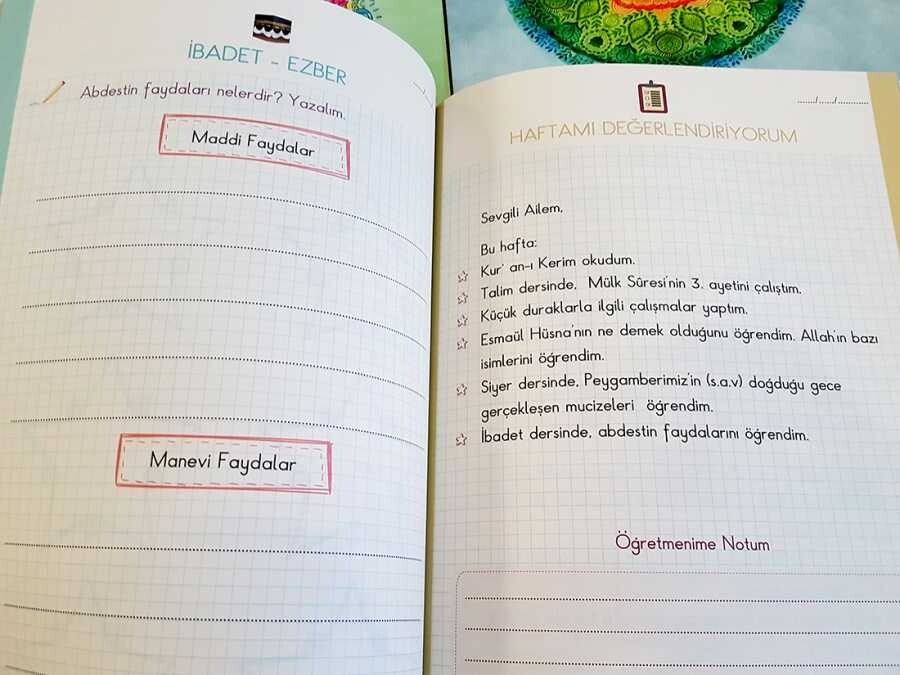 İBADET - EZBER
Abdestin faydaları nelerdir? Yazalım.
Maddi Faydalar
Manevi Faydalar
....../....../...........
HAFTAMI DEĞERLENDİRİYORUM
Sevgili Ailem,
Bu hafta:
Kur' an-ı Kerim okudum.
Talim dersinde, Mülk Sûresi'nin 3. ayetini çalıştım.
Küçük duraklarla ilgili çalışmalar yaptım.
Esmaül Hüsna'nın ne demek olduğunu öğrendim. Allah'ın bazı
isimlerini öğrendim.
Siyer dersinde, Peygamberimiz'in (s.a.v) doğduğu gece
gerçekleşen mucizeleri öğrendim.
İbadet dersinde, abdestin faydalarını öğrendim.
Öğretmenime Notum